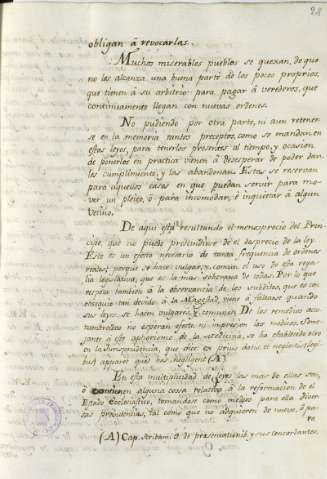 28
obligan á revocarlas.
Muchos miserables pueblos se quexan, de que
no les alcanza una buena parte de los pocos propios,
que tienen á su arbitrio para pagar á verederos, que
continuamente llegan con nuevas ordenes.
No pudiendo por otra parte, ni aun retener
se en la memoria tantos preceptos, como se mandan en
estas leyes, para tenerlos presentes al tiempo, y ocasion
de ponerlos en practica vienen á desesperar de poder dar
les cumplimiento, y las abandonan. Estas se reservan
para aquellos casos en que puedan servir para mo
ver un pleito, ó para incomodar, é inquietar á algun
Vecino.
De aqui está resultando el menosprecio del Prin
cipe, que no puede prescindirse de el desprecio de la ley.
Este es un efecto necesario de tanta frecuencia de ordenan
zas; porque se hace vulgar, y comun el uso de esta rega
lia legislativa, que es la mas soberana de todas. Por lo que
respeta tambien á la observancia de los subditos, que es con
siguiente tan devido á la Magestad, viene á faltarse quando
sus leyes se hacen vulgares, y comunes. De los remedios acos
tumbrados no esperan efecto ni impresion las medicos.
á este aphorismo de la medicina, se ha establecido otro
en la Jurisprudencia, que dice
(A)
En esta multiplicidad de leyes las mas de ellas son,
ó contienen alguna cosa relativa á la reformacion de el
Estado Eclesiastico, tomandose como medios para ella diver
sas providencias, tal como que no adquieren de nuevo, ó pa
ra
(A) Cap.